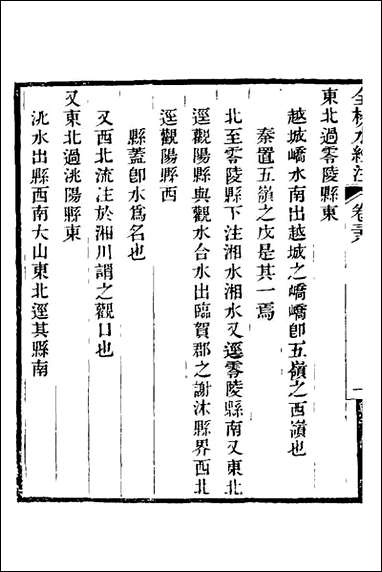 全校水經注 卷三十八 一
東北過零陵縣東
越城嶠水南出越城之嶠嶠卽五嶺之西嶺也
秦置五嶺之戍是其一焉
北至零陵縣下注湘水湘水又逕零陵縣南又東北
逕觀陽縣與觀水合水出臨賀郡之謝沐縣界西北
逕觀陽縣西
縣蓋卽水爲名也
又西北流注於湘川謂之觀口也
又東北過洮陽縣東
洮水出縣西南大山東北逕其縣南